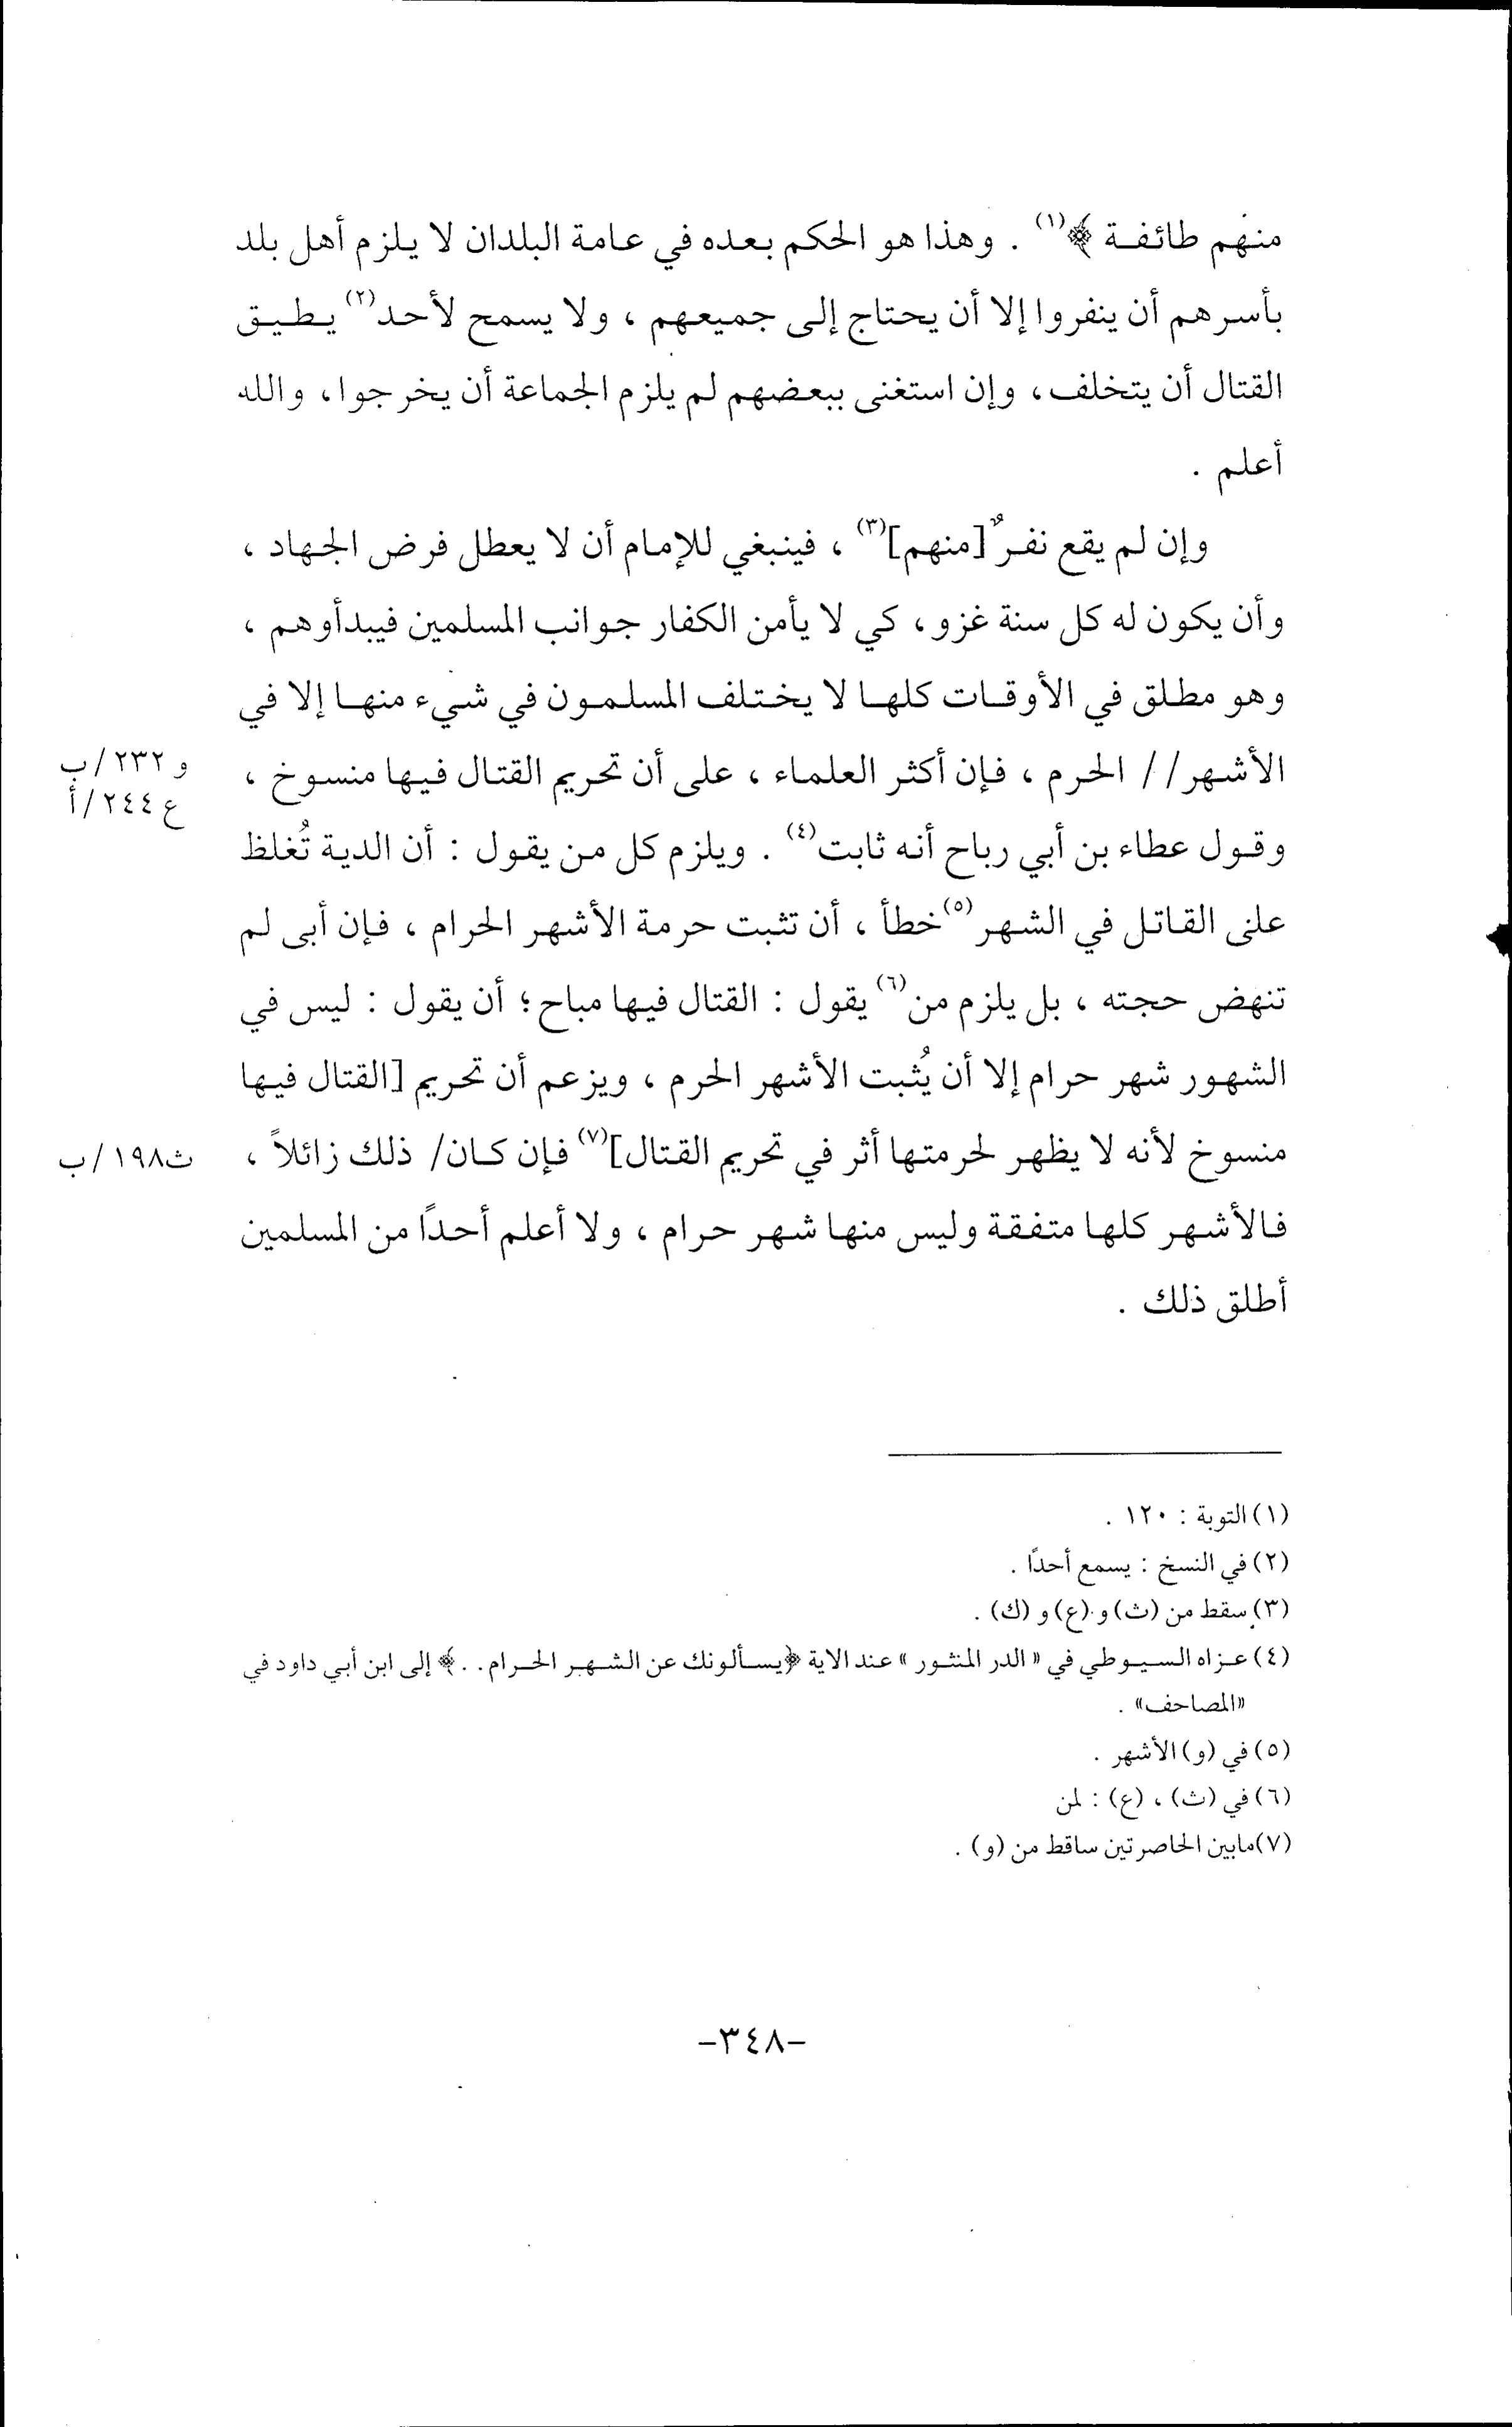 منهم طائفة ﴾(١) . وهذا هو الحكم بعده في عامة البلدان لا يلزم أهل بلد
بأسرهم أن ينفروا إلا أن يحتاج إلى جميعهم ، ولا يسمح لأحد(٢) يطيق
القتال أن يتخلف ، وإن استغنى ببعضهم لم يلزم الجماعة أن يخرجوا ، والله
أعلم .
وإن لم يقع نفرٌ [منهم](٣) ، فينبغي للإمام أن لا يعطل فرض الجهاد ،
وأن يكون له كل سنة غزو ، كي لا يأمن الكفار جوانب المسلمين فيبدأوهم ،
وهو مطلق في الأوقات كلها لا يختلف المسلمون في شيء منها إلا في
الأشهر// الحرم ، فإن أكثر العلماء ، على أن تحريم القتال فيها منسوخ ،
و ٢٣٢/ب
ع ٢٤٤/أ
وقول عطاء بن أبي رباح أنه ثابت(٤) . ويلزم كل من يقول : أن الدية تُغلظ
على القاتل في الشهر(٥) خطأ ، أن تثبت حرمة الأشهر الحرام ، فإن أبى لم
تنهض حجته ، بل يلزم من(٦) يقول : القتال فيها مباح ؛ أن يقول : ليس في
الشهور شهر حرام إلا أن يُثبت الأشهر الحرم ، ويزعم أن تحريم [القتال فيها
منسوخ لأنه لا يظهر لحرمتها أثر في تحريم القتال](٧) فإن كان/ ذلك زائلاً ،
ث١٩٨/ب
فالأشهر كلها متفقة وليس منها شهر حرام ، ولا أعلم أحدًا من المسلمين
أطلق ذلك .
(١) التوبة : ١٢٠ .
(٢) في النسخ : يسمع أحدًا .
(٣) سقط من (ث) و (ع) و (ك) .
(٤) عزاه السيوطي في « الدر المنثور » عند الاية ﴿يسألونك عن الشهر الحرام . . ﴾ إلى ابن أبي داود في
«المصاحف» .
(٥) في (و) الأشهر .
(٦) في (ث) ، (ع) : لمن
(٧) مابين الحاصرتين ساقط من (و) .
-٣٤٨-